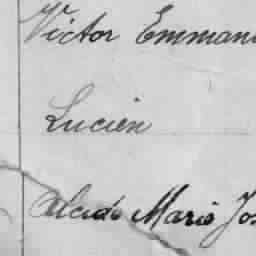 Victor Emman
Lucien
Alcide Marie Jos